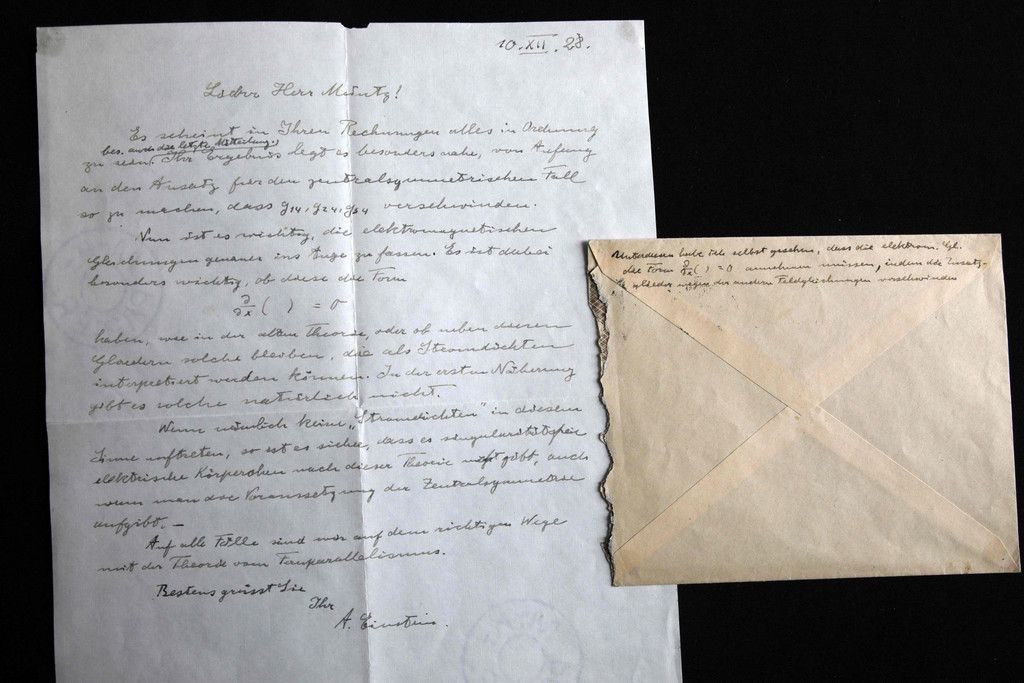 10.XII.28.
Lieber Herr Müntz!
Es scheint in Ihren Rechnungen alles in Ordnung
bes. auch die letzte Mitteilung.
zu sein. Ihr Ergebnis legt es besonders nahe, von Anfang
an den Ansatz für den zentralsymmetrischen Fall
so zu machen, dass g14, g24, g34 verschwinden.
Nun ist es wichtig, die elektromagnetischen
Gleichungen genauer ins Auge zu fassen. Es ist dabei
besonders wichtig, ob diese die Form
∂/∂x ( ) = 0
haben, wie in der alten Theorie, oder ob neben diesen
Gliedern solche bleiben, die als Stromdichten
interpretiert werden können. In der ersten Näherung
gibt es solche natürlich nicht.
Wenn nämlich keine „Stromdichten" in diesem
Sinne auftreten, so ist es sicher, dass es singularitätsfreie
elektrische Körperchen nach dieser Theorie nicht gibt, auch
wenn man die Voraussetzung der Zentralsymmetrie
aufgibt. —
Auf alle Fälle sind wir auf dem richtigen Wege
mit der Theorie vom Fernparallelismus.
Bestens grüsst Sie
Ihr
A. Einstein.
Unterdessen habe ich selbst gesehen, dass die elektrom. Gl.
die Form ∂/∂x ( ) = 0 annehmen müssen, indem die Zusatz-
glieder wegen der andern Feldgleichungen verschwinden